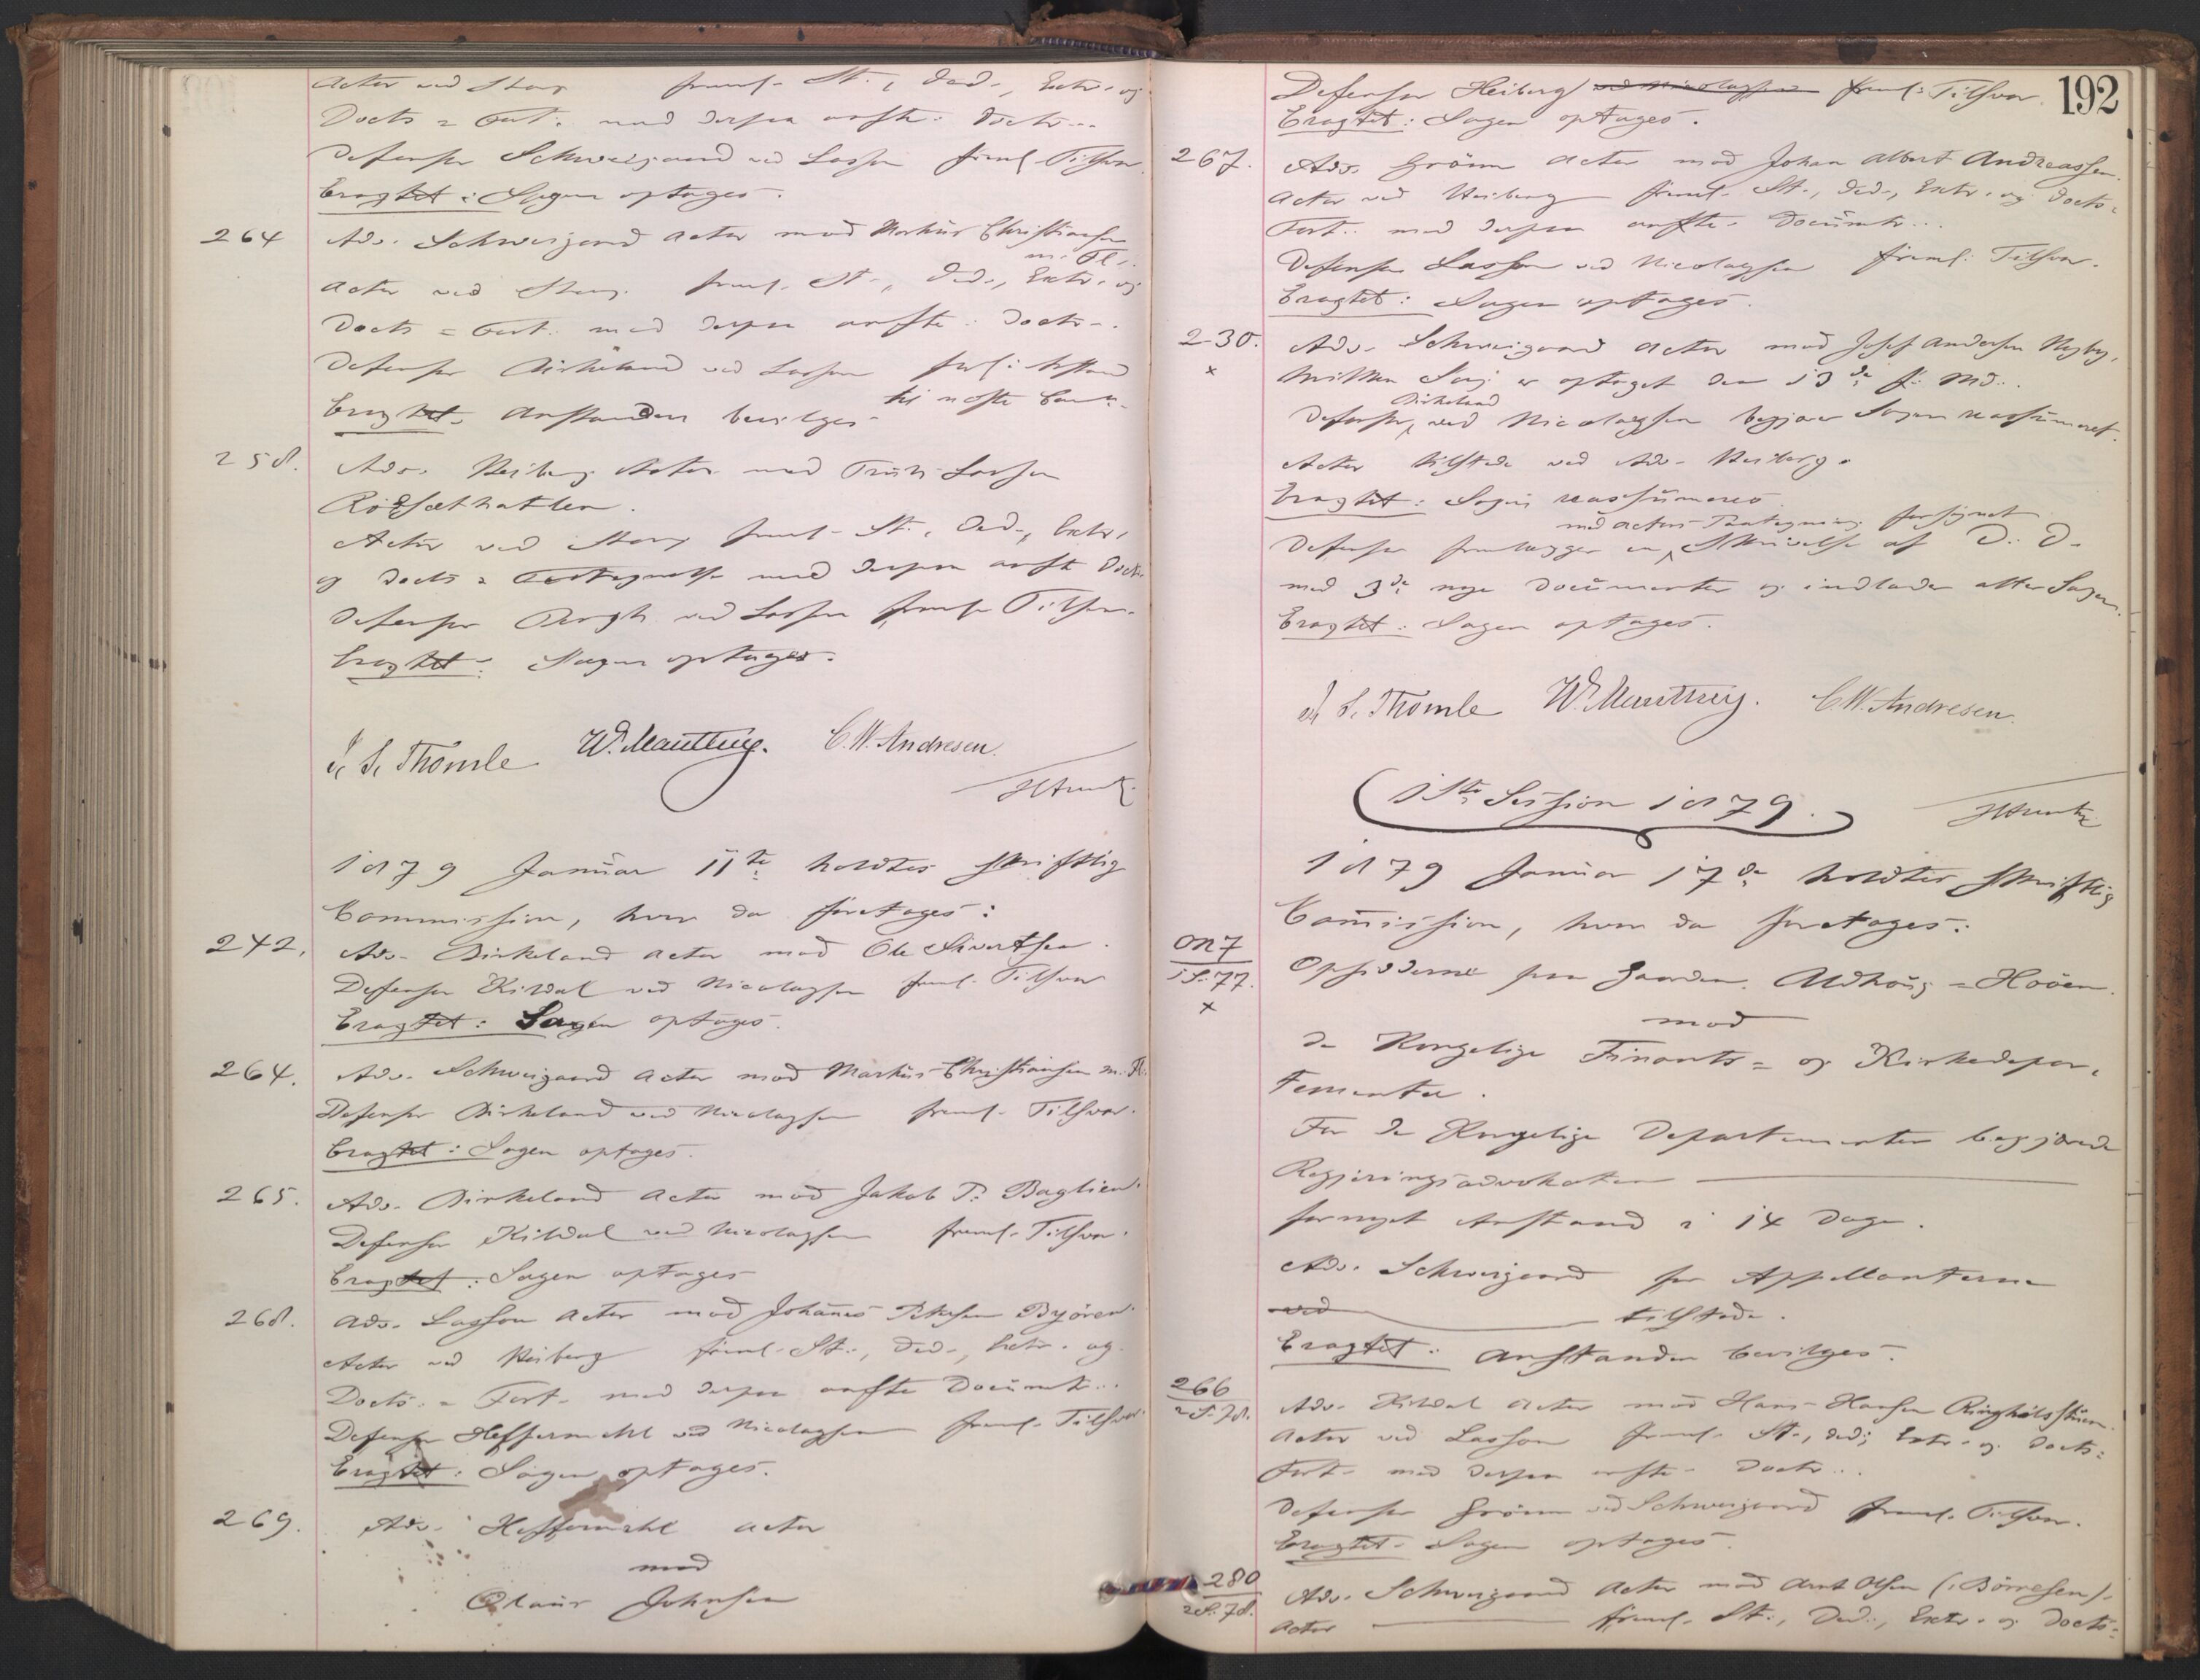 Actor ved Stang freml. St., Ded., Extr. og
Docts = Fort. med derpaa anfte. Docts...
Defensor Schweigaard ved Lasson freml. Tilsvar.
Eragtet: Sagen optages.
264 Adv. Schweigaard Actor mod Markus Christiansen
m. Fl.
Actor ved Stang freml. St., Ded., Extr. og
Docts = Fort. med derpaa anfte. Docts..
Defensor Birkeland ved Lasson
til næste
Eragtet. Anstanden bevilges
258. Adv. Heiberg Actor mod Larsen
Rödsæthatlen.
Actor ved Stang freml. St., Ded., Extr.
og Docts = Fortegnelse med derpaa anft
Defensor Bergh ved Lasson freml. Tilsvar.
Eragtet: Sagen optages.
J. S. Thomle W. Manthey. C. W. Andresen.
1879 Januar 11te holdtes skriftlig
Commission, hvor da foretages:
242. Adv. Birkeland Actor mod Ole Sivertsen.
Defensor Kildal ved Nicolaysen freml. Tilsvar
Eragtet: Sagen optages.
264. Adv. Schweigaard Actor mod Markus Christiansen m. Fl.
Defensor Birkeland ved Nicolaysen freml. Tilsvar.
Eragtet: Sagen optages.
265. Adv. Birkeland Actor mod Jakob P. Baglien.
Defensor Kildal ved Nicolaysen freml. Tilsvar.
Eragtet: Sagen optages
268. Adv. Lasson Actor mod Johannes Byören.
Actor ved Heiberg freml. St., Ded., Extr. og
Docts. = Fort. med derpaa anfte Documtr..
Defensor Heffermehl ved Nicolaysen freml. Tilsvar
Eragtet: Sagen optages.
269. Adv. Heffermehl Actor
mod
Olaus Johnsen
192
Defensor Heiberg ved Nicolaysen freml. Tilsvar.
Eragtet: Sagen optages.
267. Adv. Grönn Actor mod Johan Albert Andreassen.
Actor ved Heiberg freml. St., Ded., Extr. og Docts =
Fort. med derpaa anfte. Documtr...
Defensor Lasson ved Nicolaysen freml. Tilsvar.
Eragtet: Sagen optages.
230. Adv. Schweigaard Actor mod Josef Andersen Nyby,
x hvilken Sag er optaget den 13de f. Md..
Birkeland
Defensor ved Nicolaysen begjærer Sagen reassumeret.
Actor tilstede ved Adv. Heiberg.
Eragtet: Sagen reassumeres
med Actors Paategning forsynet
Defensor fremlægger en Skrivelse af D. D.
med 3de nye Documenter og indlader atter Sagen.
Eragtet: Sagen optages.
J. S. Thomle W. Manthey. C. W. Andresen.
1ste Session 1879.
1879 Januar 17de holdtes skriftlig
Commission, hvor da foretages:
ON 7
1 S. 77.
x
Opsidderne paa Gaarden Aldhoug = Hoöen.
mod
de Kongelige Finants = og Kirkedepar.
tementer.
For de Kongelige Departementer begjærede
Regjeringsadvokaten
fornyet Anstand i 14 Dage.
Adv. Schweigaard for Appellanterne
ved tilstede.
Eragtet: Anstanden bevilges.
266
2 S. 78.
Adv. Kildal Actor mod Hans Hansen
Actor ved Lasson freml. St., Ded., Extr. og Docts =
Fort. med derpaa anfte. Docts...
Defensor Grönn ved Schweigaard freml. Tilsvar.
Eragtet. Sagen optages.
280
2 S. 78.
Adv. Schweigaard Actor mod Arnt Olsen (Börresen).
Actor freml. St., Ded., Extr. og Docts =